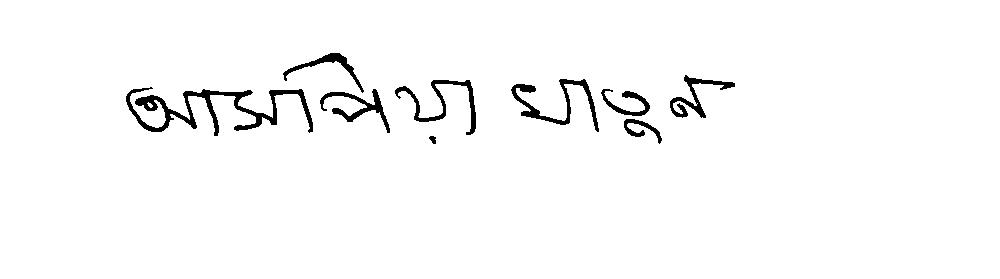 আসাপিয়া খাতুন